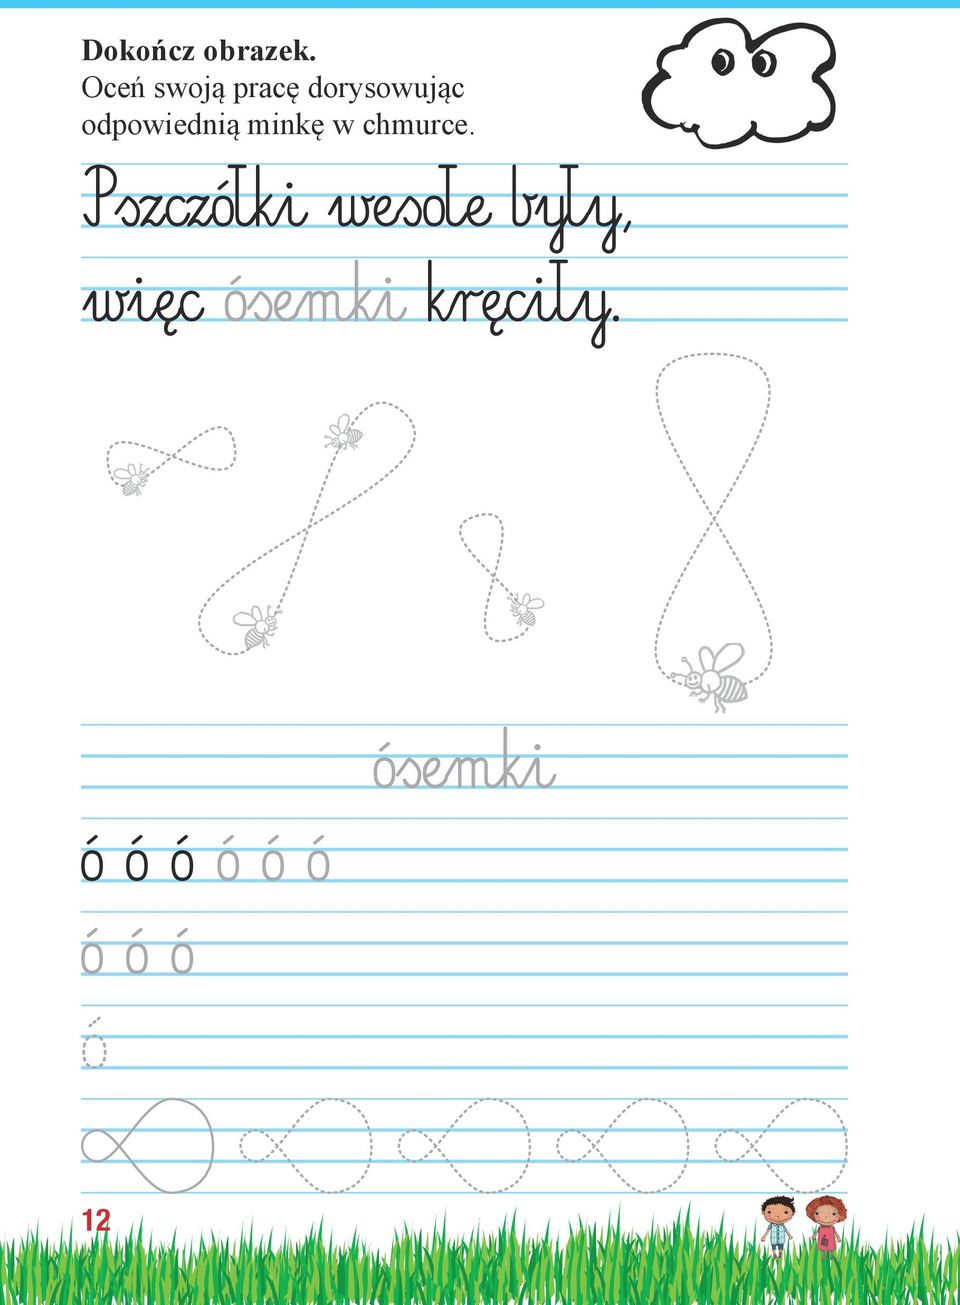 Dokończ obrazek.
Oceń swoją pracę dorysowując
odpowiednią minkę w chmurce.
Pszczółki wesołe były,
więc ósemki kręciły.
ósemki
ó ó ó ó ó ó
ó ó ó
ó
12